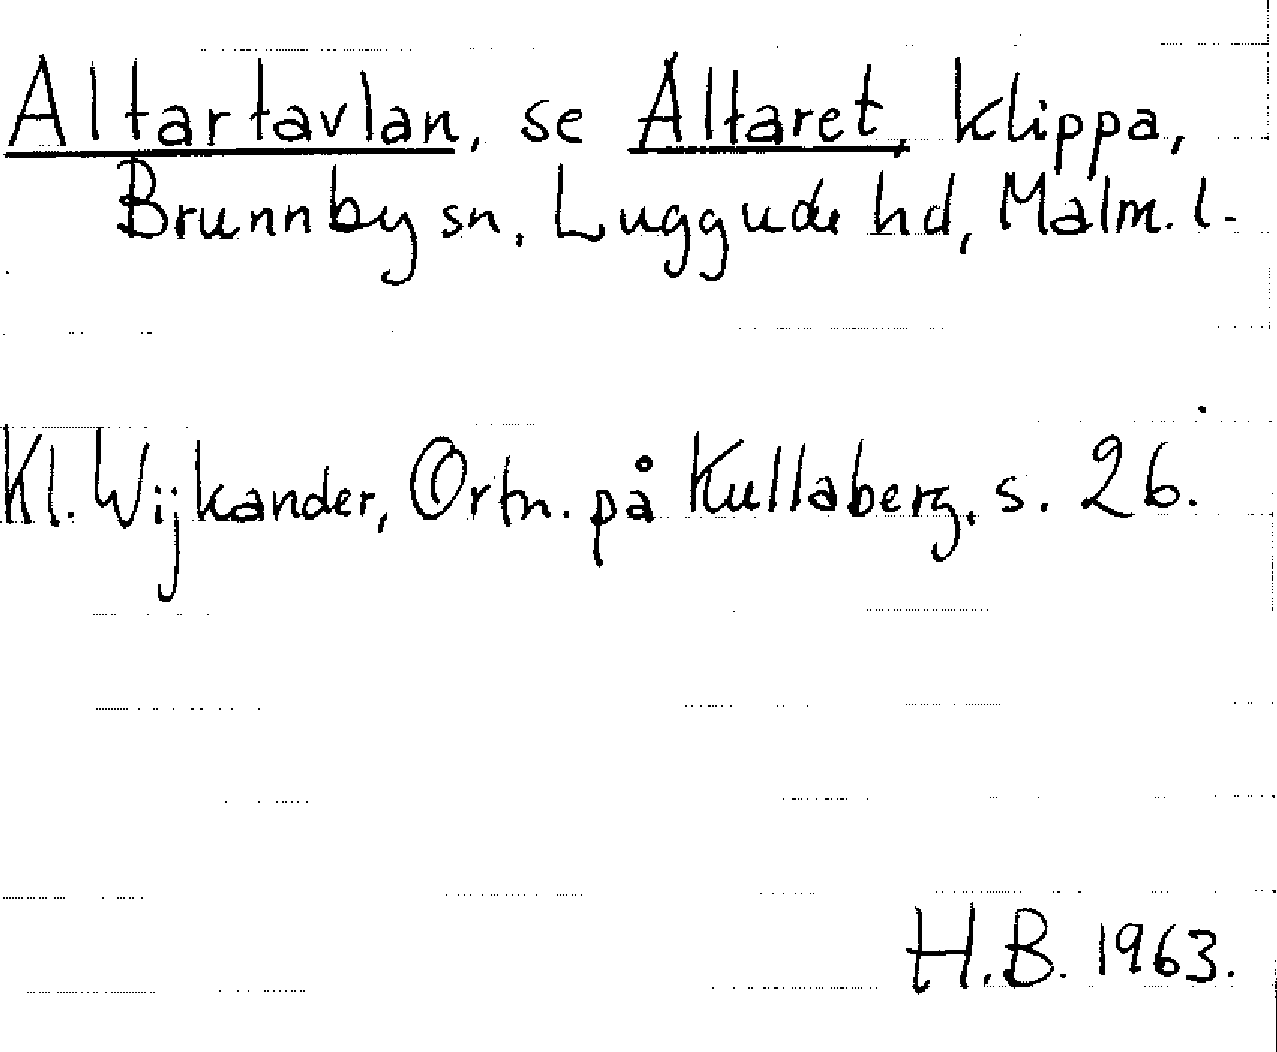 Altartavlan, se Altaret, klippa,
Brunnby sn, Luggude hd, Malm. l.
Kl. Wijkander, Ortn. på Kullaberg, s. 26.
H.B. 1963.